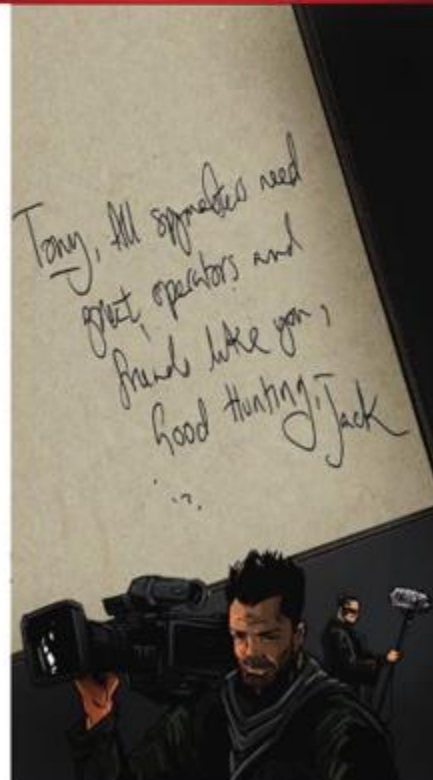 Tony, All spymasters need
great operators and
friends like you,
Good Hunting, Jack